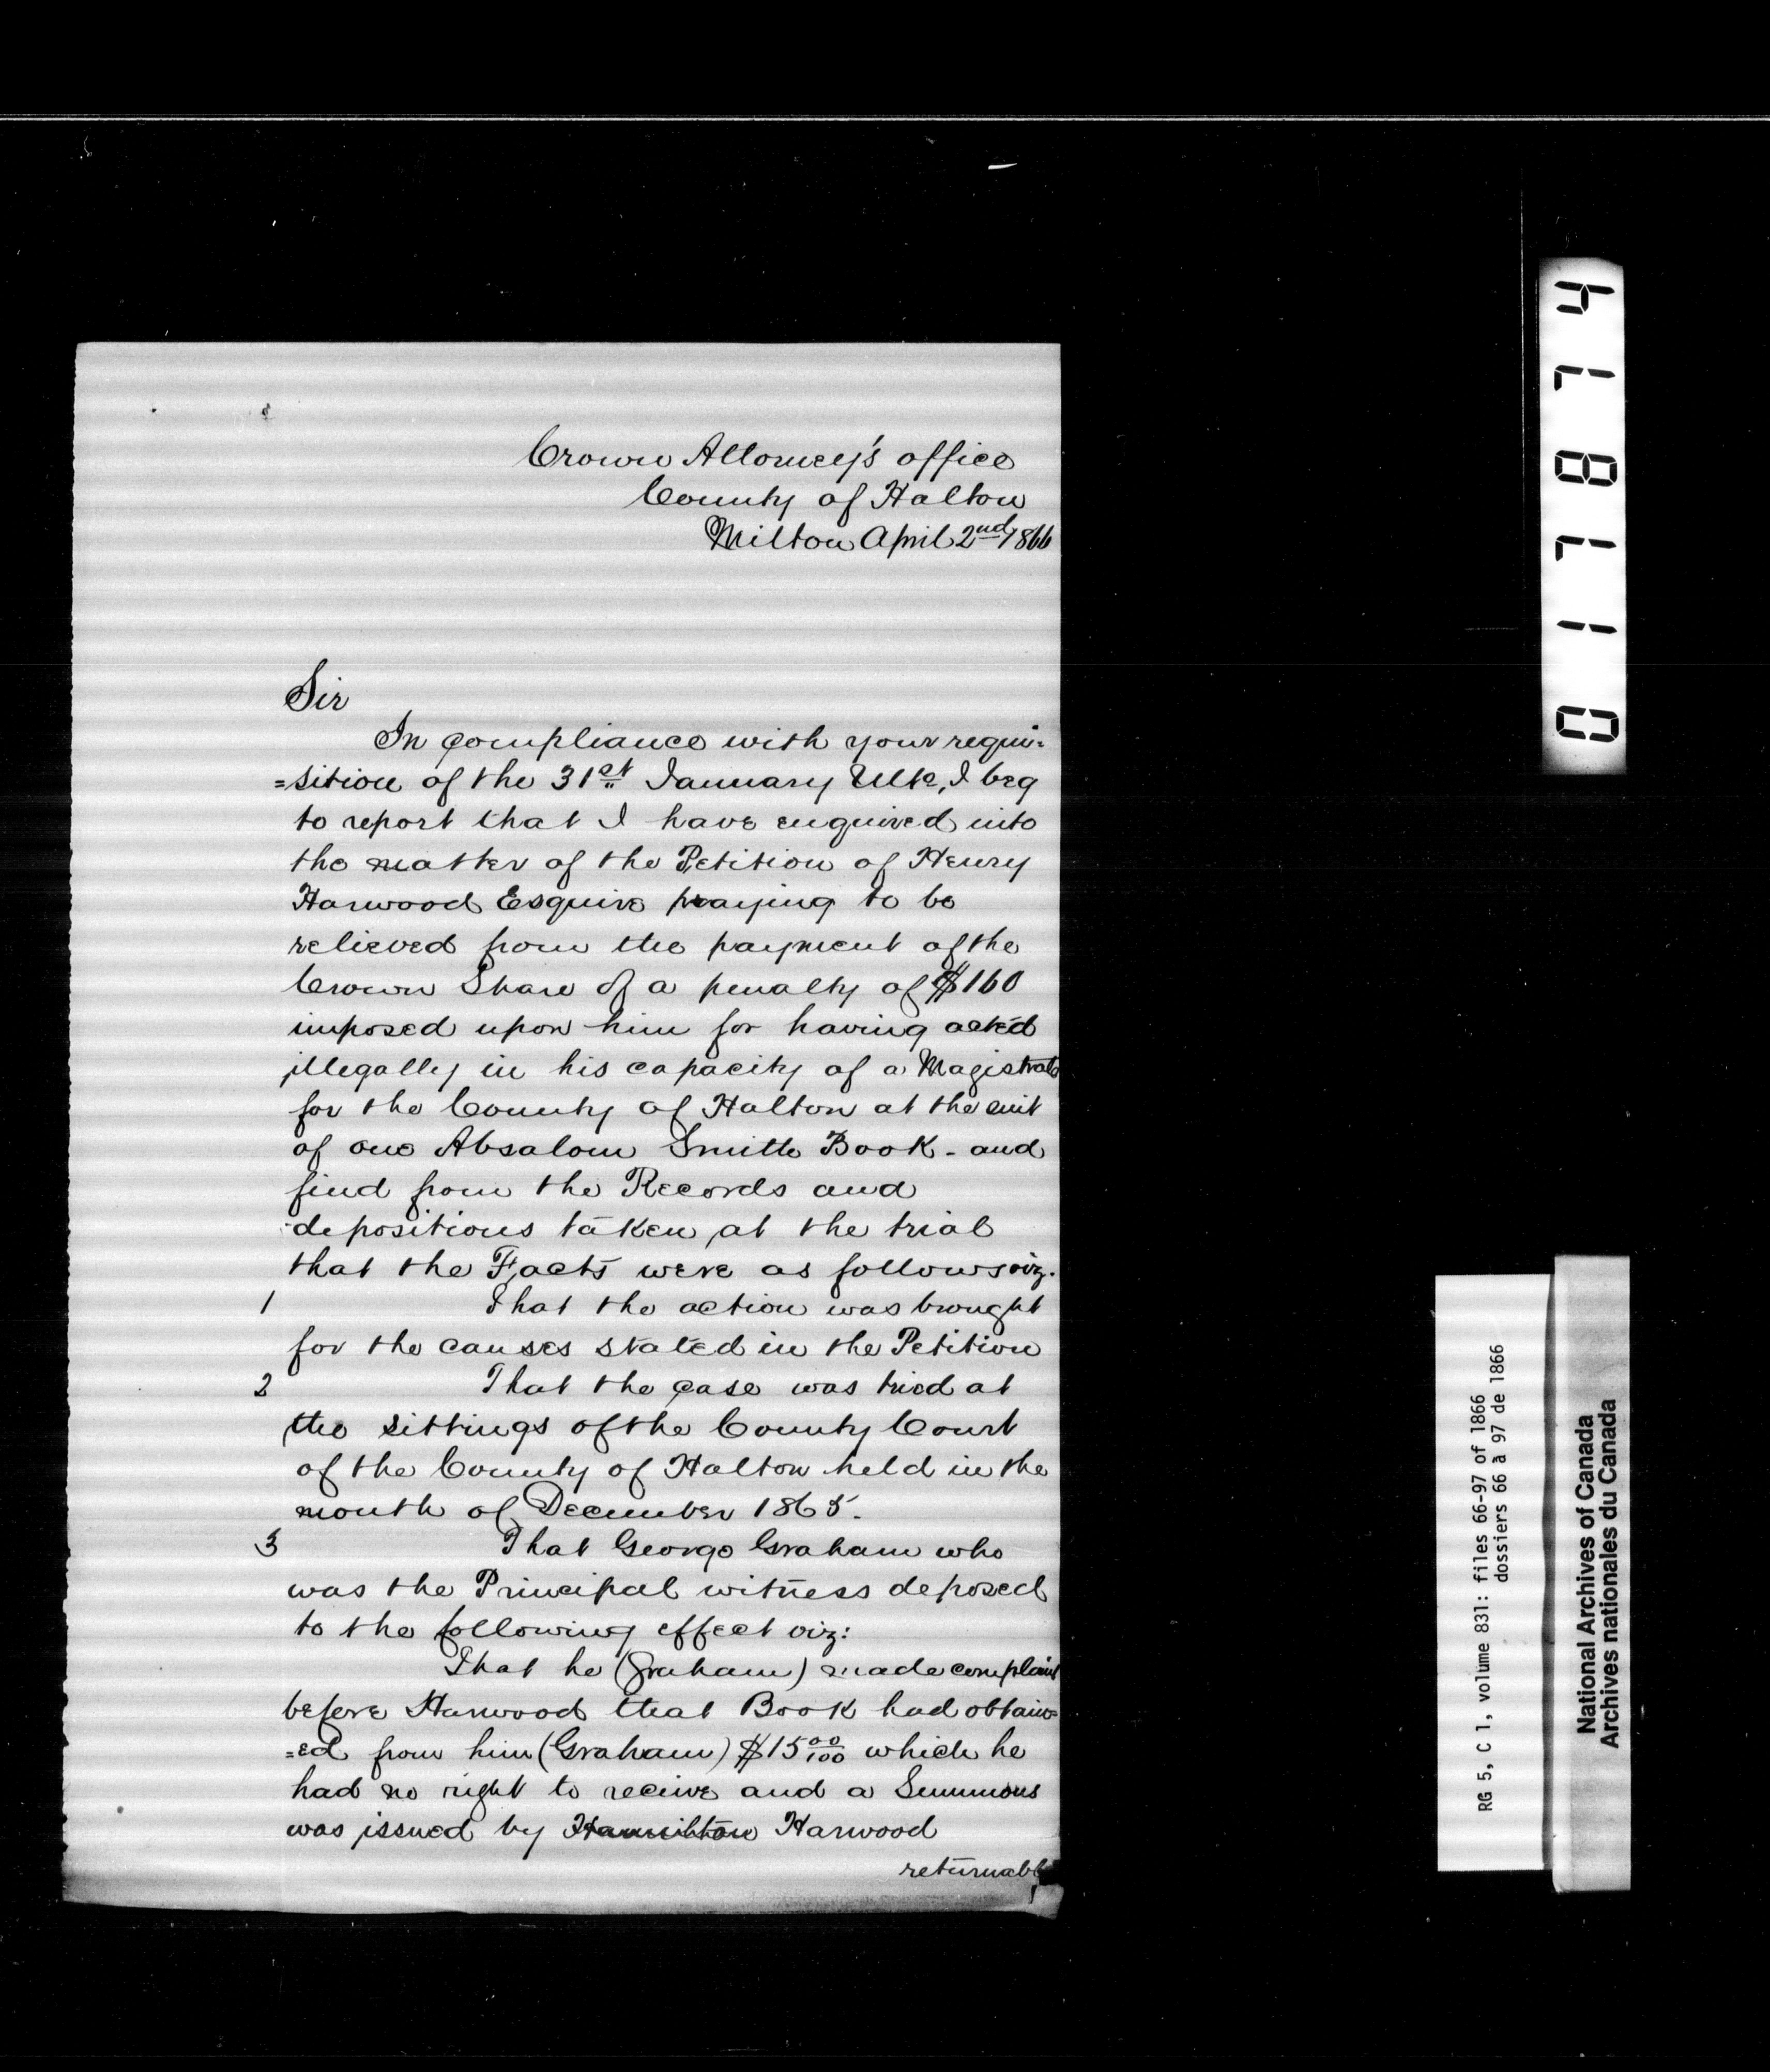 Crown Attorney's office
County of Halton
Milton April 2nd 1866
Sir
In compliance with your requi=
=sition of the 31st January Ulto, I beg
to report that I have enquired into
the matter of the Petition of Henry
Harwood Esquire praying to be
relieved from the payment of the
Crown Share of a penalty of $160
imposed upon him for having acted
illegally in his capacity of a Magistrate
for the County of Halton at the suit
of one Absalom Smith Book - and
find from the Records and
depositions taken at the trial
that the Facts were as follows viz.
1 That the action was brought
for the causes stated in the Petition
2 That the case was tried at
the sittings of the County Court
of the County of Halton held in the
month of December 1865.
3 That George Graham who
was the Principal witness deposed
to the following effect viz:
That he (Graham) made complaint
before Harwood that Book had obtain=
=ed from him (Graham) $15 00/100 which he
had no right to receive and a Summons
was issued by Hamilton Harwood
returnable
017874
RG 5, C 1, volume 831: files 66-97 of 1866
dossiers 66 à 97 de 1866
National Archives of Canada
Archives nationales du Canada